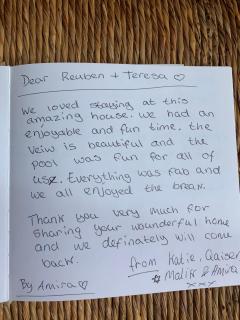 Dear Reuben + Teresa ♡
We loved staying at this
amazing house. we had an
enjoyable and fun time. the
veiw is beautiful and the
pool was fun for all of
us. Everything was fab and
we all enjoyed the break.
Thank you very much for
sharing your wounderful home
and we definately will come
back.
from Katie, Qaiser
Malik & Amira
xxx
By Amira ♡